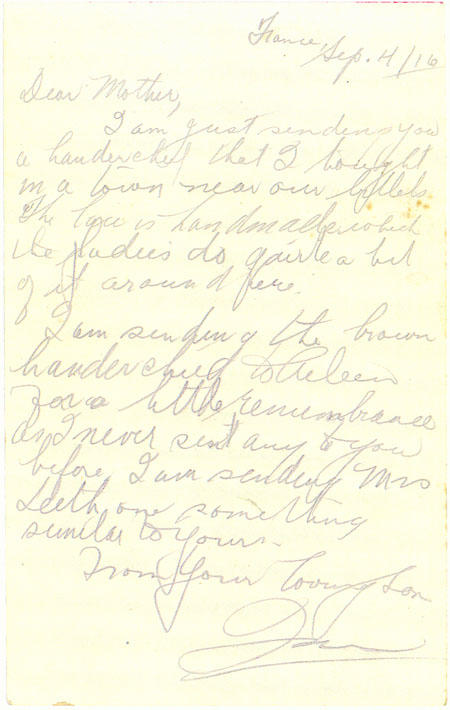 France,
Sep. 4/16
Dear Mother,
I am just sending you
a handerchef that I bought
in a town near our billets.
The lace is handmade which
the ladies do quite a bit
of it around here.
I am sending the brown
handerchief to
for a little remembrance
as I never sent any to you
before. I am sending Mrs
Leeth one something
similar to yours.
From Your loving Son